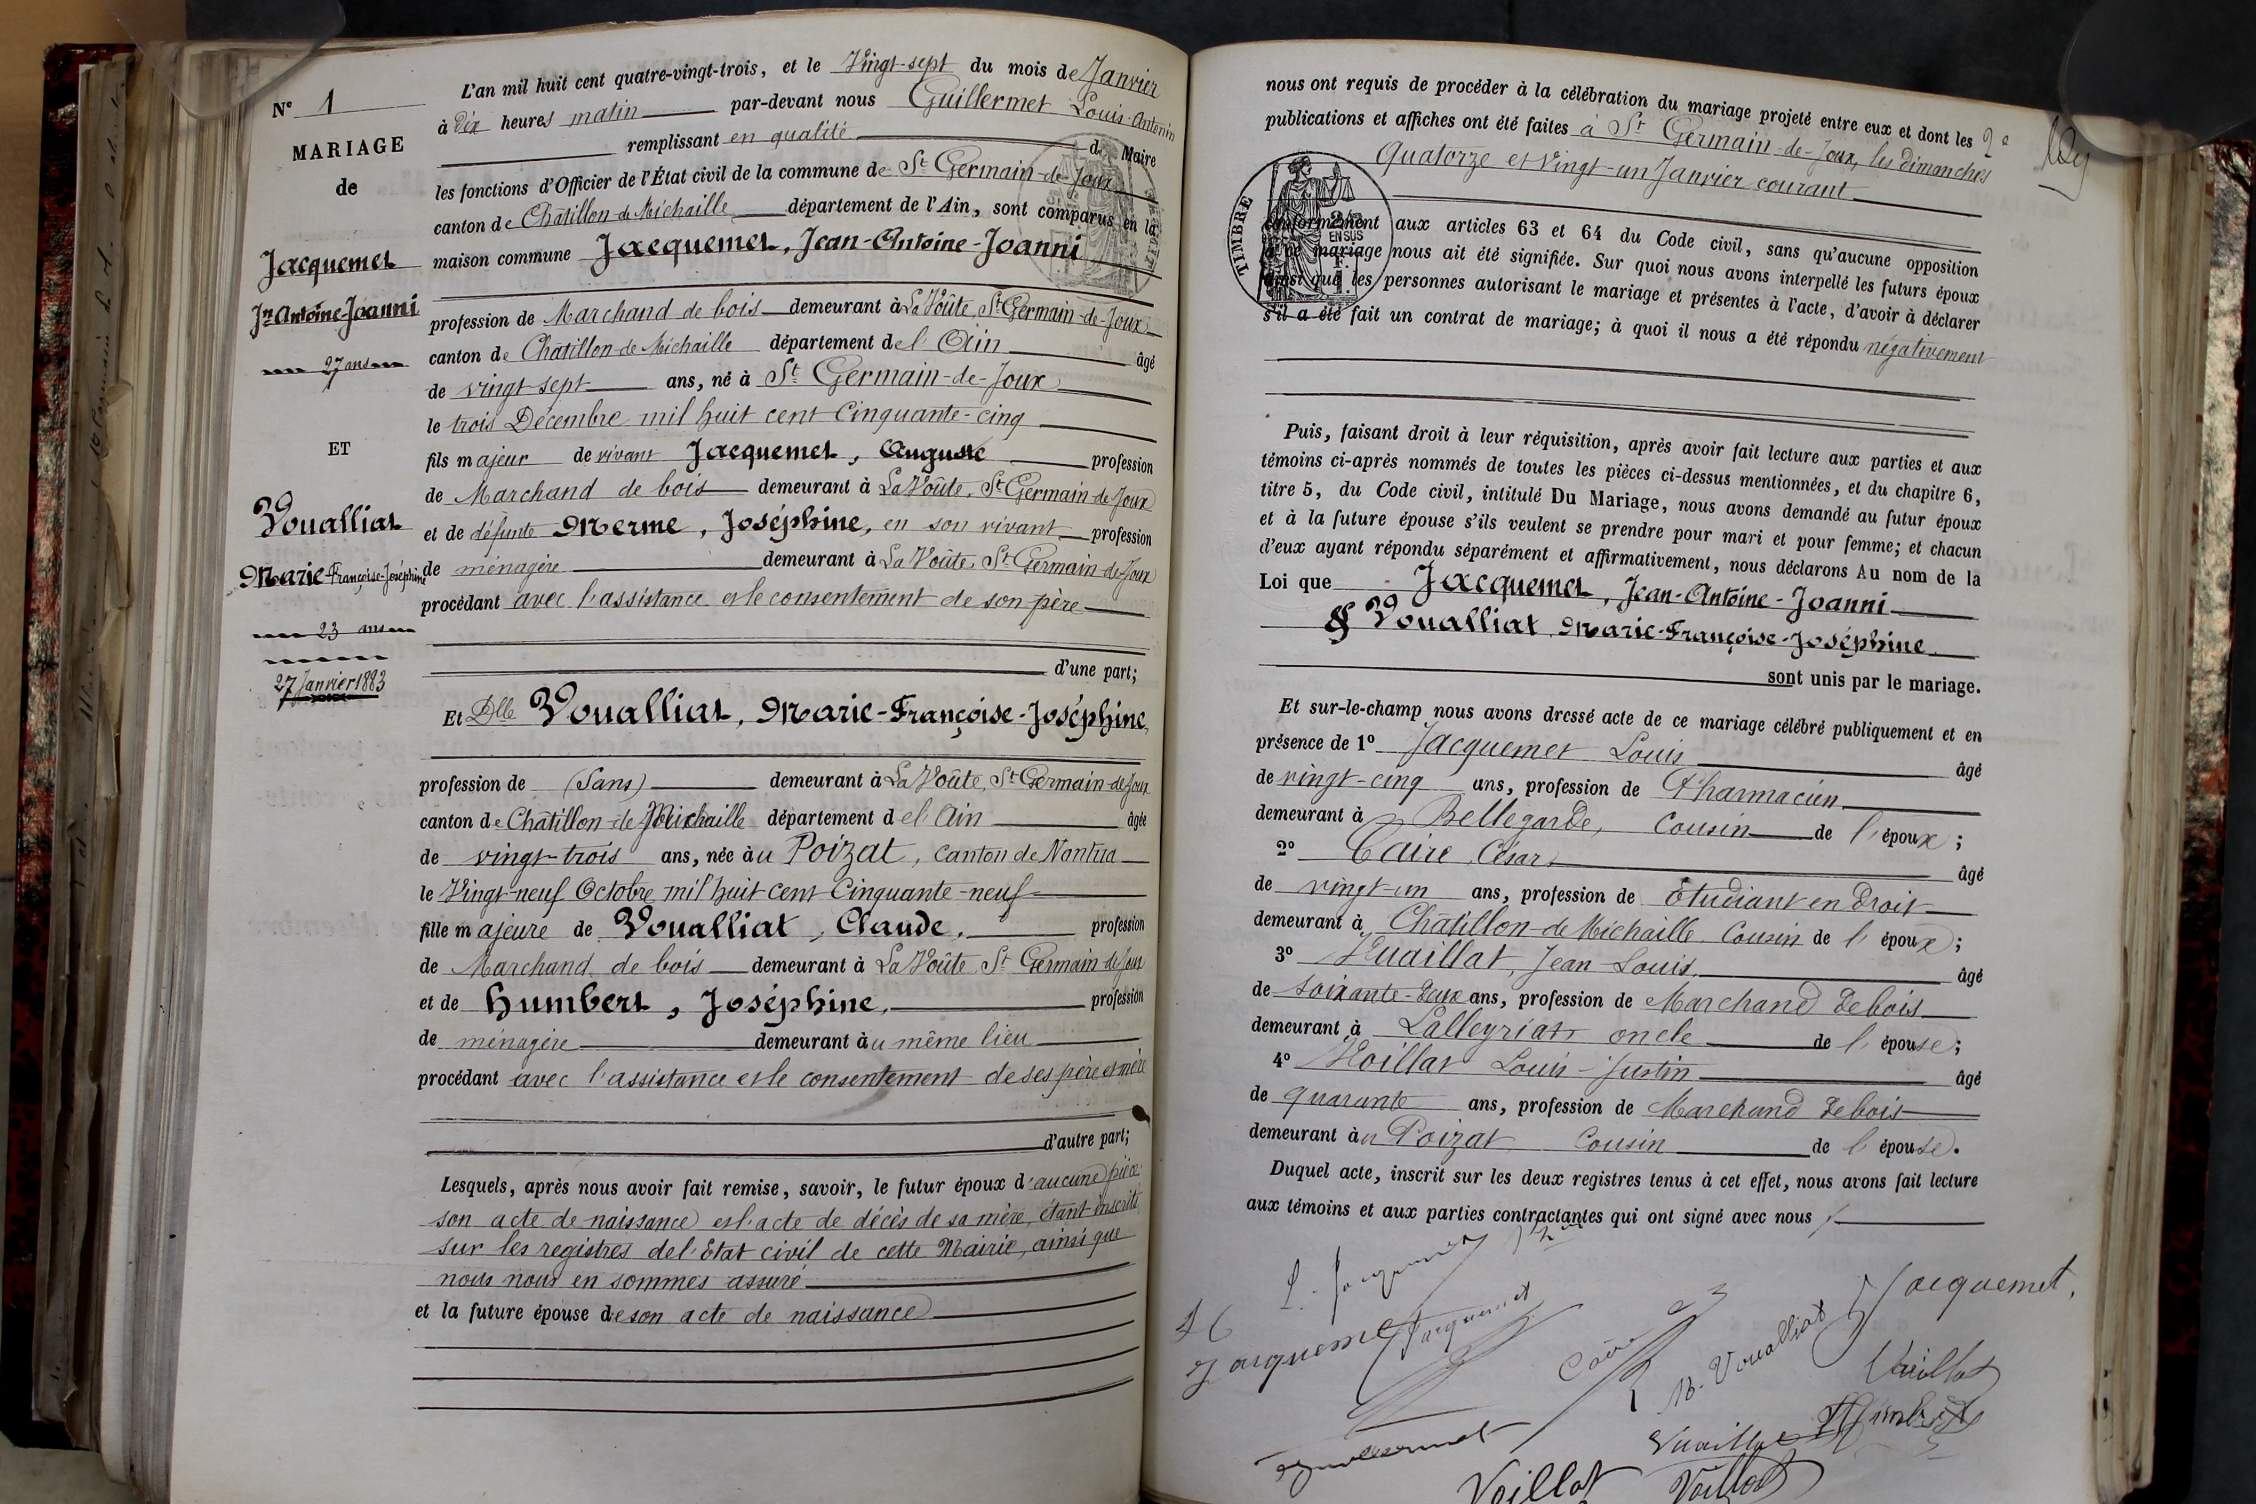 N° 1
MARIAGE
de
Jacquemet
Jn Antoine-Joanni
27 ans
ET
Voualliat
Marie-Françoise-Joséphine
23 ans
27 Janvier 1883
L'an mil huit cent quatre-vingt-trois, et le Vingt-sept du mois de Janvier
à Dix heures matin par-devant nous Guillermet Louis-Antonin
remplissant en qualité de Maire
les fonctions d'Officier de l'État civil de la commune de St Germain-de-Joux
canton de Châtillon de Michaille département de l'Ain, sont comparus en la
maison commune Jacquemet, Jean-Antoine-Joanni
profession de Marchand de bois demeurant à La Voûte, St Germain-de-Joux
canton de Chatillon de Michaille département de l'Ain âgé
de vingt sept ans, né à St Germain-de-Joux
le trois Décembre mil huit cent Cinquante-cinq
fils majeur de vivant Jacquemet, Auguste profession
de Marchand de bois demeurant à La Voûte, St Germain-de-Joux
et de défunte Merme, Joséphine, en son vivant profession
de ménagère demeurant à La Voûte, St Germain-de-Joux
procédant avec l'assistance et le consentement de son père
d'une part;
Et Dlle Voualliat, Marie-Françoise-Joséphine,
profession de (Sans) demeurant à La Voûte, St Germain-de-Joux
canton de Châtillon-de-Michaille département de l'Ain âgée
de vingt-trois ans, née au Poizat, canton de Nantua
le Vingt-neuf Octobre mil huit cent Cinquante-neuf
fille majeure de Voualliat, Claude, profession
de Marchand de bois demeurant à La Voûte, St Germain-de-Joux
et de Humbert, Joséphine, profession
de ménagère demeurant au même lieu
procédant avec l'assistance et le consentement de ses père et mère
d'autre part;
Lesquels, après nous avoir fait remise, savoir, le futur époux d'aucune pièce
son acte de naissance et l'acte de décès de sa mère, étant inscrits
sur les registres de l'Etat civil de cette Mairie, ainsi que
nous nous en sommes assuré
et la future épouse de son acte de naissance
nous ont requis de procéder à la célébration du mariage projeté entre eux et dont les 2
publications et affiches ont été faites à St Germain-de-Joux, les dimanches
Quatorze et vingt-un Janvier courant
TIMBRE
conformément aux articles 63 et 64 du Code civil, sans qu'aucune opposition
à ce mariage nous ait été signifiée. Sur quoi nous avons interpellé les futurs époux
ainsi que les personnes autorisant le mariage et présentes à l'acte, d'avoir à déclarer
s'il a été fait un contrat de mariage; à quoi il nous a été répondu négativement
Puis, faisant droit à leur réquisition, après avoir fait lecture aux parties et aux
témoins ci-après nommés de toutes les pièces ci-dessus mentionnées, et du chapitre 6,
titre 5, du Code civil, intitulé Du Mariage, nous avons demandé au futur époux
et à la future épouse s'ils veulent se prendre pour mari et pour femme; et chacun
d'eux ayant répondu séparément et affirmativement, nous déclarons Au nom de la
Loi que Jacquemet, Jean-Antoine-Joanni
& Voualliat, Marie-Françoise-Joséphine
sont unis par le mariage.
Et sur-le-champ nous avons dressé acte de ce mariage célébré publiquement et en
présence de 1° Jacquemet Louis âgé
de vingt-cinq ans, profession de Pharmacien
demeurant à Bellegarde, cousin de l'époux;
2° Caire, César, âgé
de vingt-un ans, profession de Etudiant en Droit
demeurant à Chatillon-de-Michaille cousin de l'époux;
3° Vuaillat, Jean-Louis, âgé
de soixante-deux ans, profession de Marchand de bois
demeurant à Lalleyriat, oncle de l'épouse;
4° Voillat Louis-Justin âgé
de quarante ans, profession de Marchand de bois
demeurant au Poizat cousin de l'épouse.
Duquel acte, inscrit sur les deux registres tenus à cet effet, nous avons fait lecture
aux témoins et aux parties contractantes qui ont signé avec nous
L. Jacquemet
Jacquemet
Jacquemet
Caire
M. Voualliat
Jacquemet
Vuillat
Humbert
Guillermet
Vuaillat
Voillat
Voillat